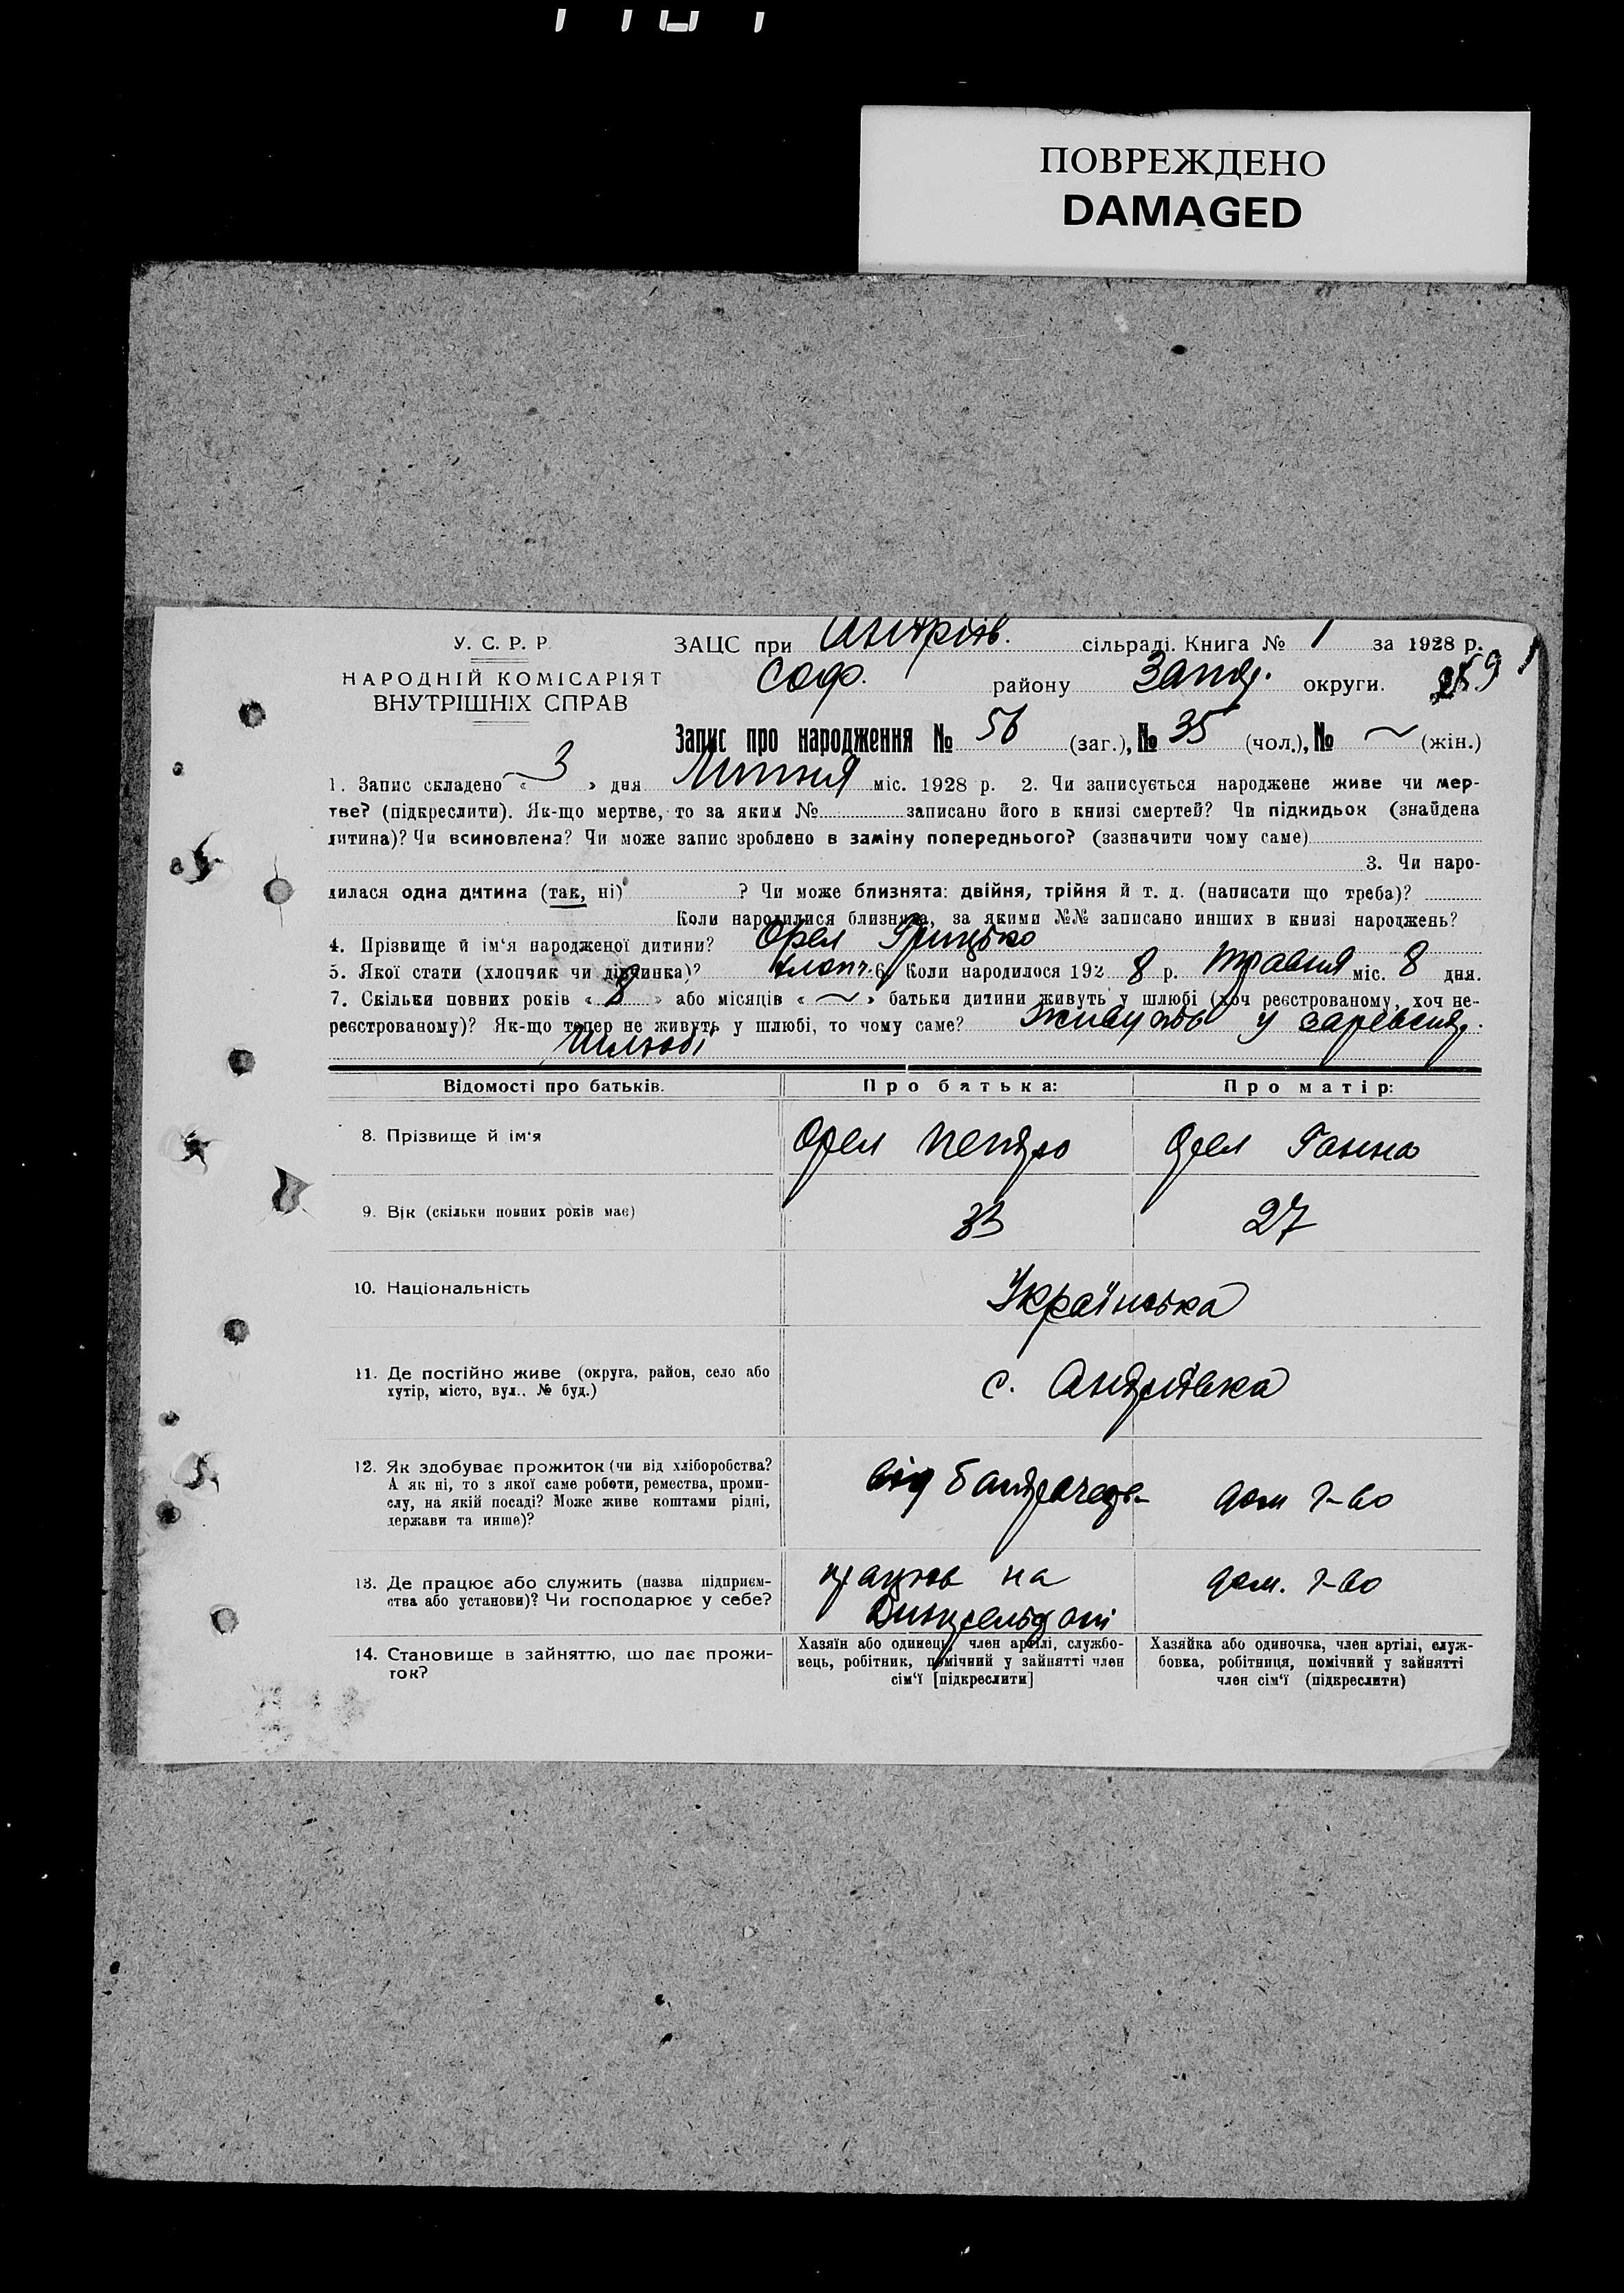 ПОВРЕЖДЕНО
DAMAGED
У. С. Р. Р.
НАРОДНІЙ КОМІСАРІЯТ
ВНУТРІШНІХ СПРАВ
ЗАЦС при Андріїв. сільраді. Книга № 1 за 1928 р.
Соф. району Запор. округи.
Запис про народження № 56 (заг.), № 35 (чол.), № ~ (жін.)
1. Запис складено « 3 » дня Липня міс. 1928 р. 2. Чи записується народжене живе чи мер-
тве? (підкреслити). Як-що мертве, то за яким № записано його в книзі смертей? Чи підкидьок (знайдена
дитина)? Чи всиновлена? Чи може запис зроблено в заміну попереднього? (зазначити чому саме)
3. Чи наро-
дилася одна дитина (так, ні) ? Чи може близнята: двійня, трійня й т. д. (написати що треба)?
Коли народилися близнята, за якими №№ записано инших в книзі народжень?
4. Прізвище й ім'я народженої дитини? Орел Грицько
5. Якої стати (хлопчик чи дівчинка)? хлопч. 6. Коли народилося 192 8 р. травня міс. 8 дня.
7. Скільки повних років « 8 » або місяців « ~ » батьки дитини живуть у шлюбі (хоч реєстрованому, хоч не-
реєстрованому)? Як-що тепер не живуть у шлюбі, то чому саме? Живуть у
шлюбі
Відомості про батьків. Про батька: Про матір:
8. Прізвище й ім'я Орел Петро Орел Ганна
9. Вік (скільки повних років має) 33 27
10. Національність Українська
11. Де постійно живе (округа, район, село або
хутір, місто, вул.. № буд.)
с. Андріївка
12. Як здобуває прожиток (чи від хліборобства?
А як ні, то з якої саме роботи, ремества, проми-
слу, на якій посаді? Може живе коштами рідні,
держави та инше)?
від дом г-во
13. Де працює або служить (назва підприєм-
ства або установи)? Чи господарює у себе?
на
дом. г-во
14. Становище в зайняттю, що дає прожи-
ток?
Хазяїн або одинець, член артілі, службо-
вець, робітник, помічний у зайнятті член
сім'ї [підкреслити]
Хазяйка або одиночка, член артілі, служ-
бовка, робітниця, помічний у зайнятті
член сім'ї (підкреслити)